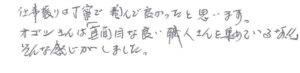 仕事振りは丁寧で頼んで良かったと思います。
オゴシさんは真面目な良い職人さんを集めている様な
そんな感じがしました。